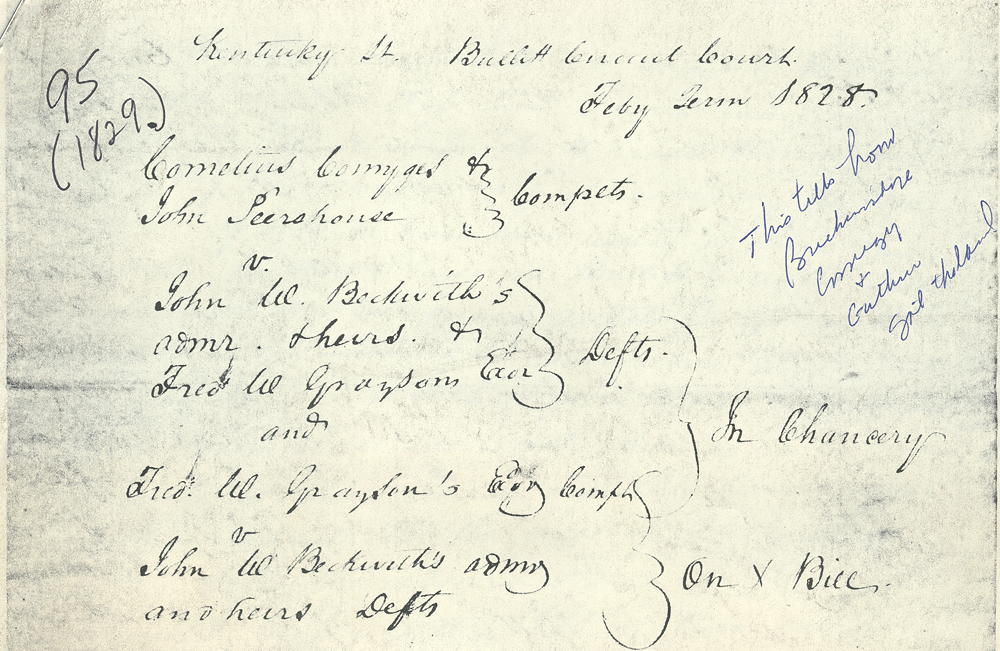 Kentucky St. Bullitt Circuit Court.
Feby Term 1828.
95
(1829)
Cornelius Comyges &
John Peershouse
Complts.
v.
John W. Beckwith's
admr. & heirs. &
Fred W Graysons Exor
Defts.
and
In Chancery
Fredk. W. Grayson's Exor Complt
v
John W Beckwith's admr
and heirs Defts
On X Bill.
This tells how
Comegy
+
Gather
got the land